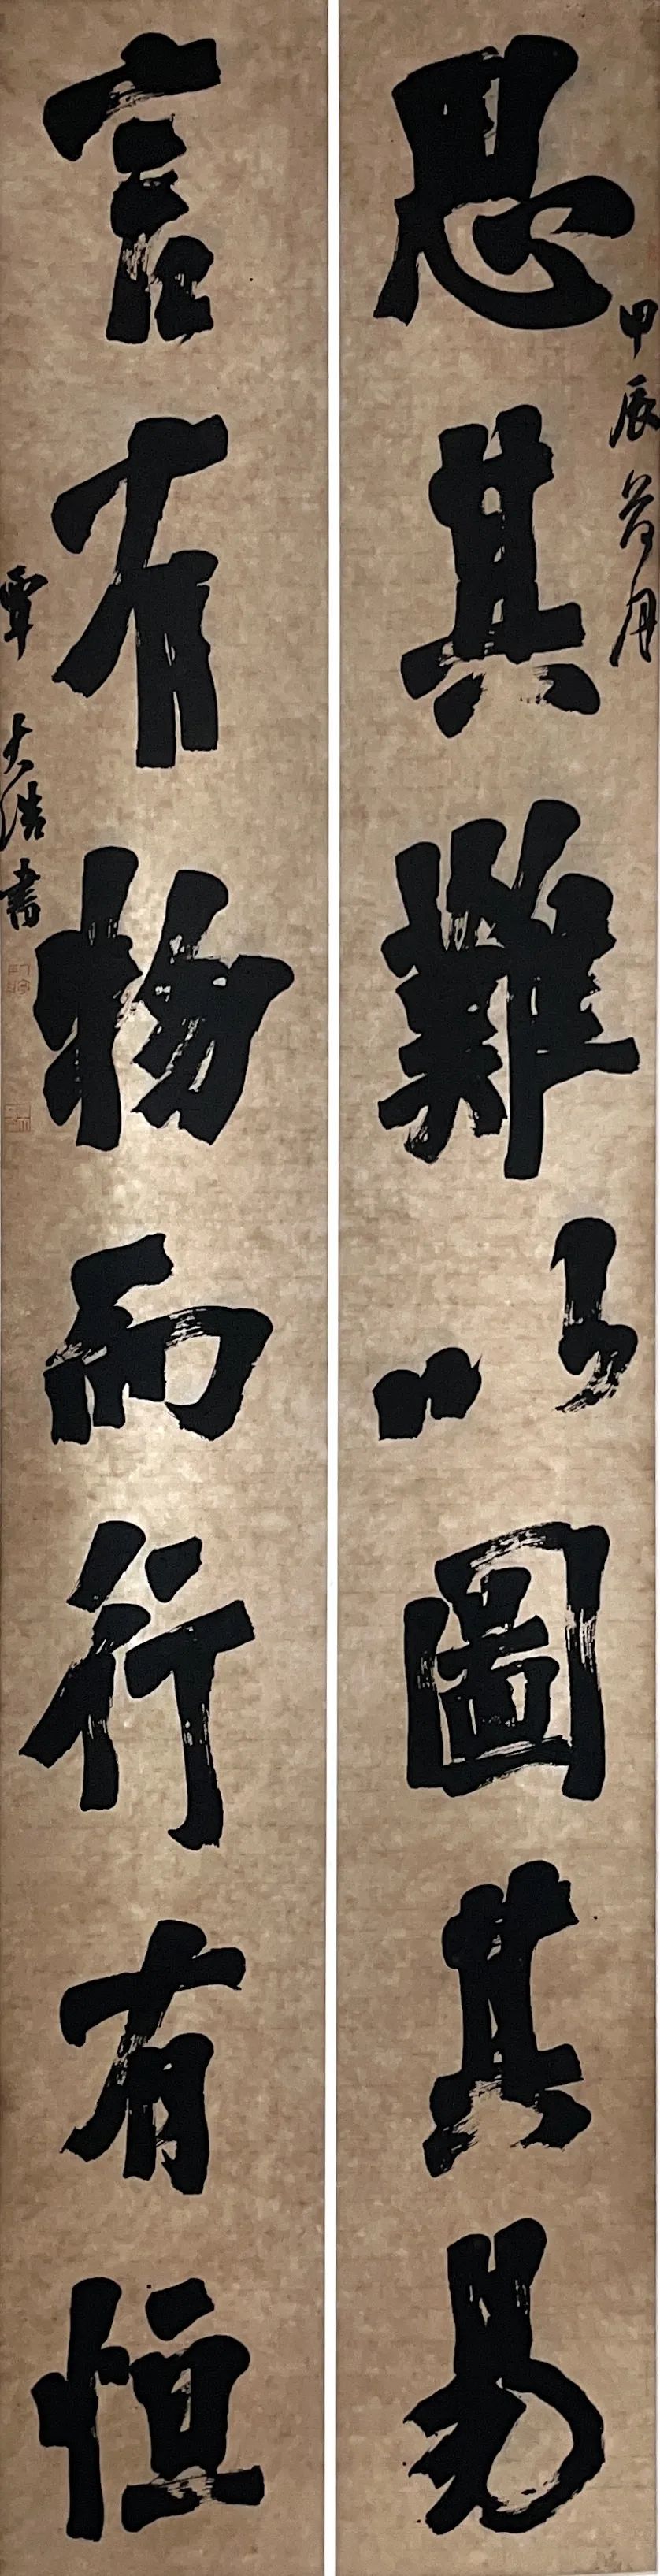 甲辰吉月
思其難以圖其易
言有物而行有恒
覃大浩書